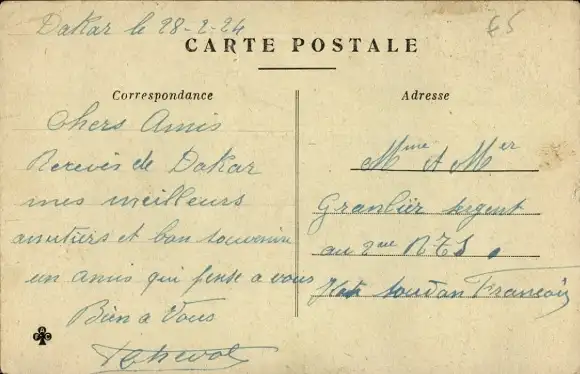 Dakar le 28-2-24
65
CARTE POSTALE
Correspondance
Adresse
Chers Amis
Recevés de Dakar
mes meilleurs
amitiers et bon souvenir
un amis qui pense a vous
Bien a Vous
Mme et Mer
Granlier sergent
au 2me RTS.
Soudan Francais